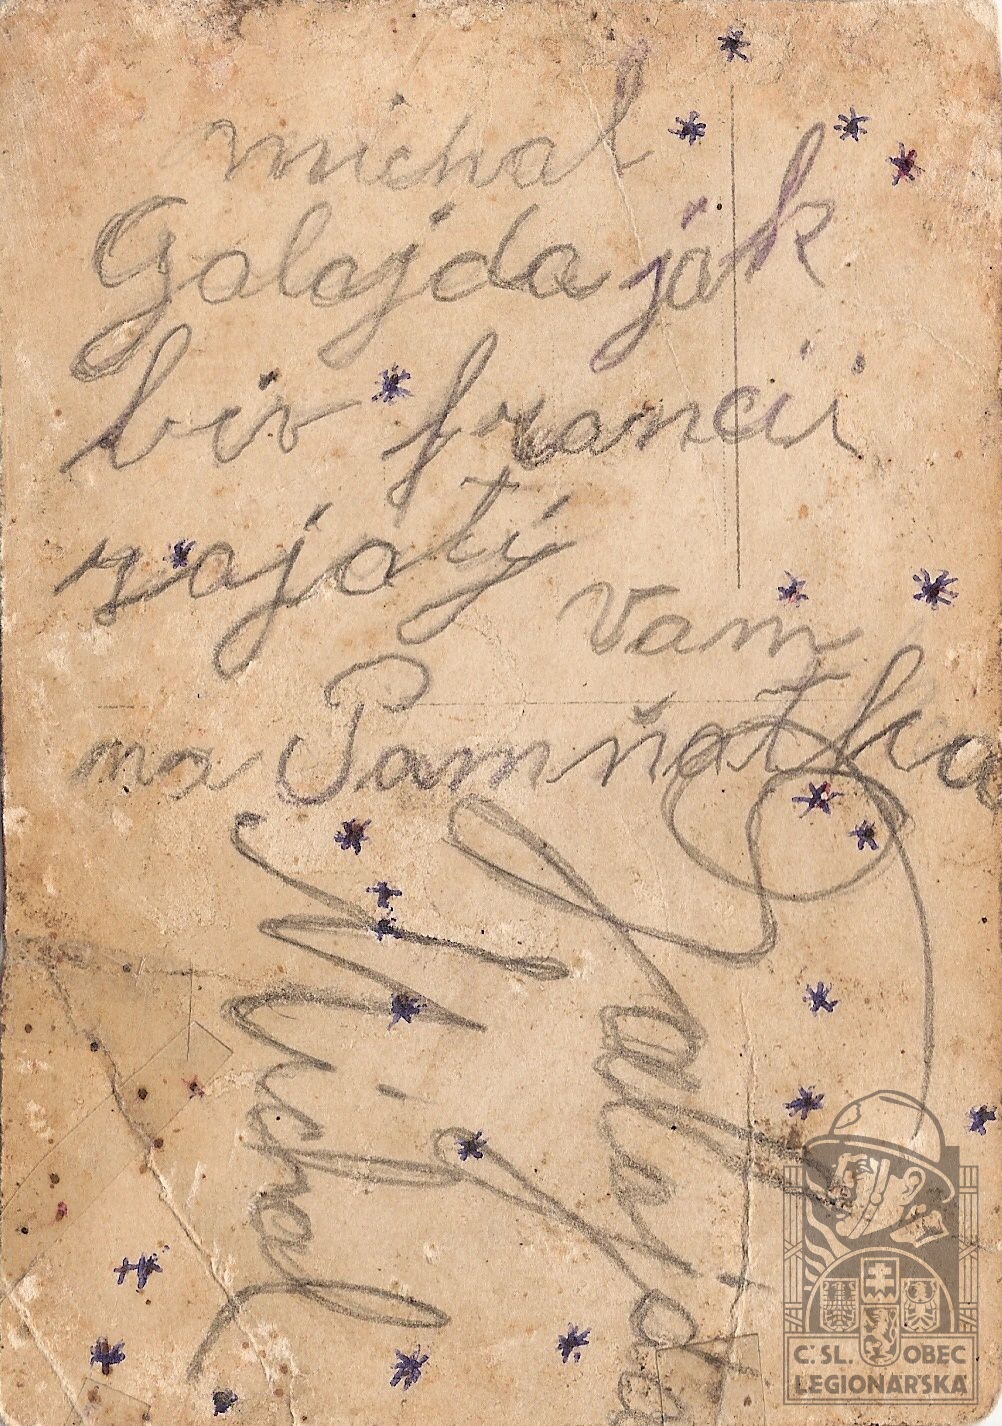 michal
Galajda jak
biv francii
zajatý
vam
na Pamňatku
Michal
Č.SL. OBEC
LEGIONÁŘSKÁ